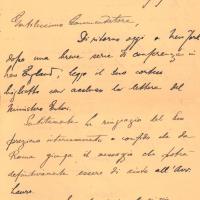 Gentilissimo Commendatore,
Di ritorno oggi a New York
dopo una breve serie di conferenze in
New England, leggo il suo cortese
biglietto con acclusa la lettera del
Ministro
Sentitamente La ringrazio del Suo
prezioso interessamento e confido che da
Roma giunga il messaggio che potrà
definitivamente essere di aiuto all'Avv.